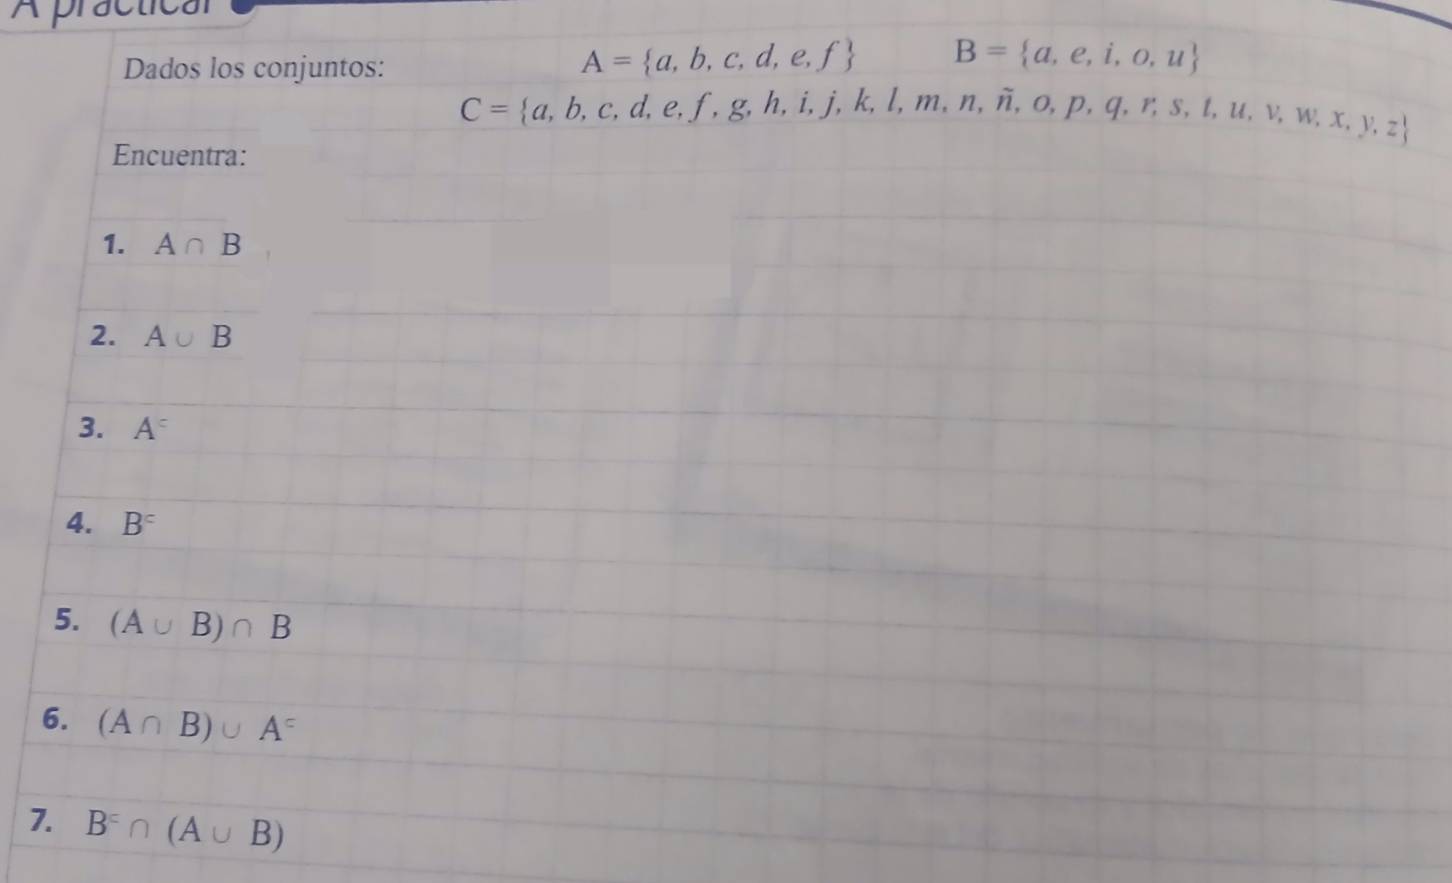 A practicar
Dados los conjuntos: A = {a, b, c, d, e, f} B = {a, e, i, o, u}
C = {a, b, c, d, e, f, g, h, i, j, k, l, m, n, ñ, o, p, q, r, s, t, u, v, w, x, y, z}
Encuentra:
1. A ∩ B
2. A ∪ B
3. Aᶜ
4. Bᶜ
5. (A ∪ B) ∩ B
6. (A ∩ B) ∪ Aᶜ
7. Bᶜ ∩ (A ∪ B)